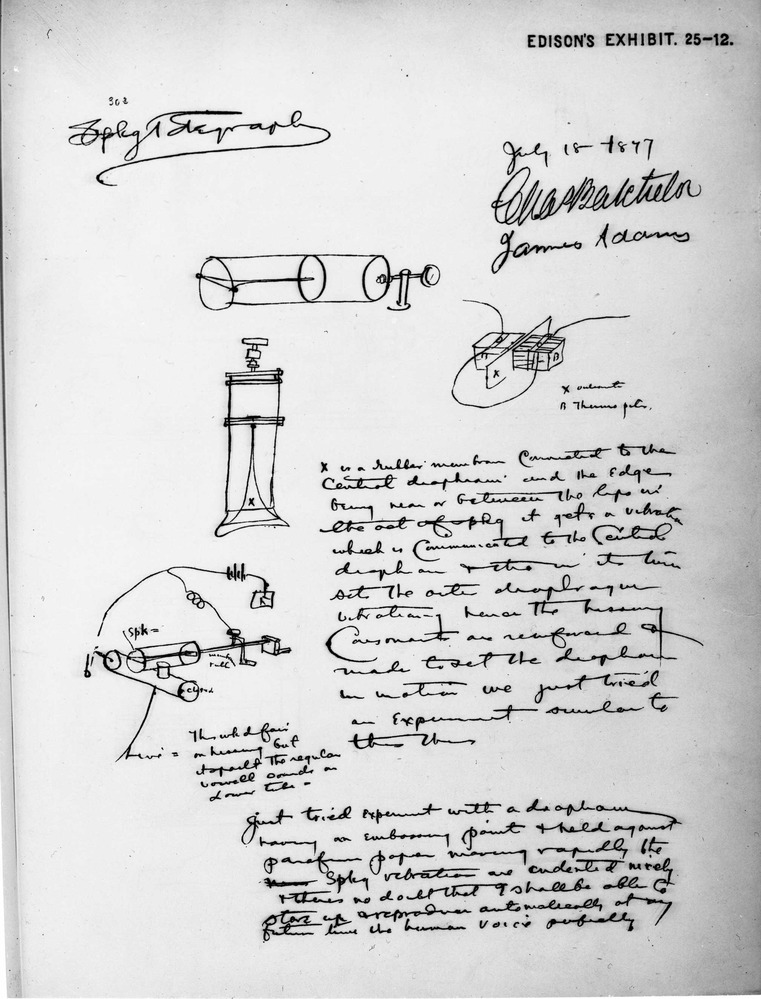 EDISON'S EXHIBIT. 25-12.
302
Spkg Telegraph
July 18 1877
Chas Batchelor
James Adams
X
B
X
B Thermo
X
X is a rubber membrane connected to the
central diaphram and the Edge
being near or between the lips in
the act of spkg it gets a vibration
which is communicated to the Central
diaphram & this in its turn
sets the outer diaphragm
vibrating hence the hissing
Consonants are reinforced &
made to set the diaphram
in motion we just tried
an Experiment similar to
this
Spk=
on hissing but
the regular
vowell sounds
tube =
Just tried experiment with a diaphram
having an embossing point & held against
parafin paper moving rapidly the
Spkg vibrations are indented nicely
& theres no doubt that I shall be able to
store up & reproduce automatically at any
future time the human voice perfectly